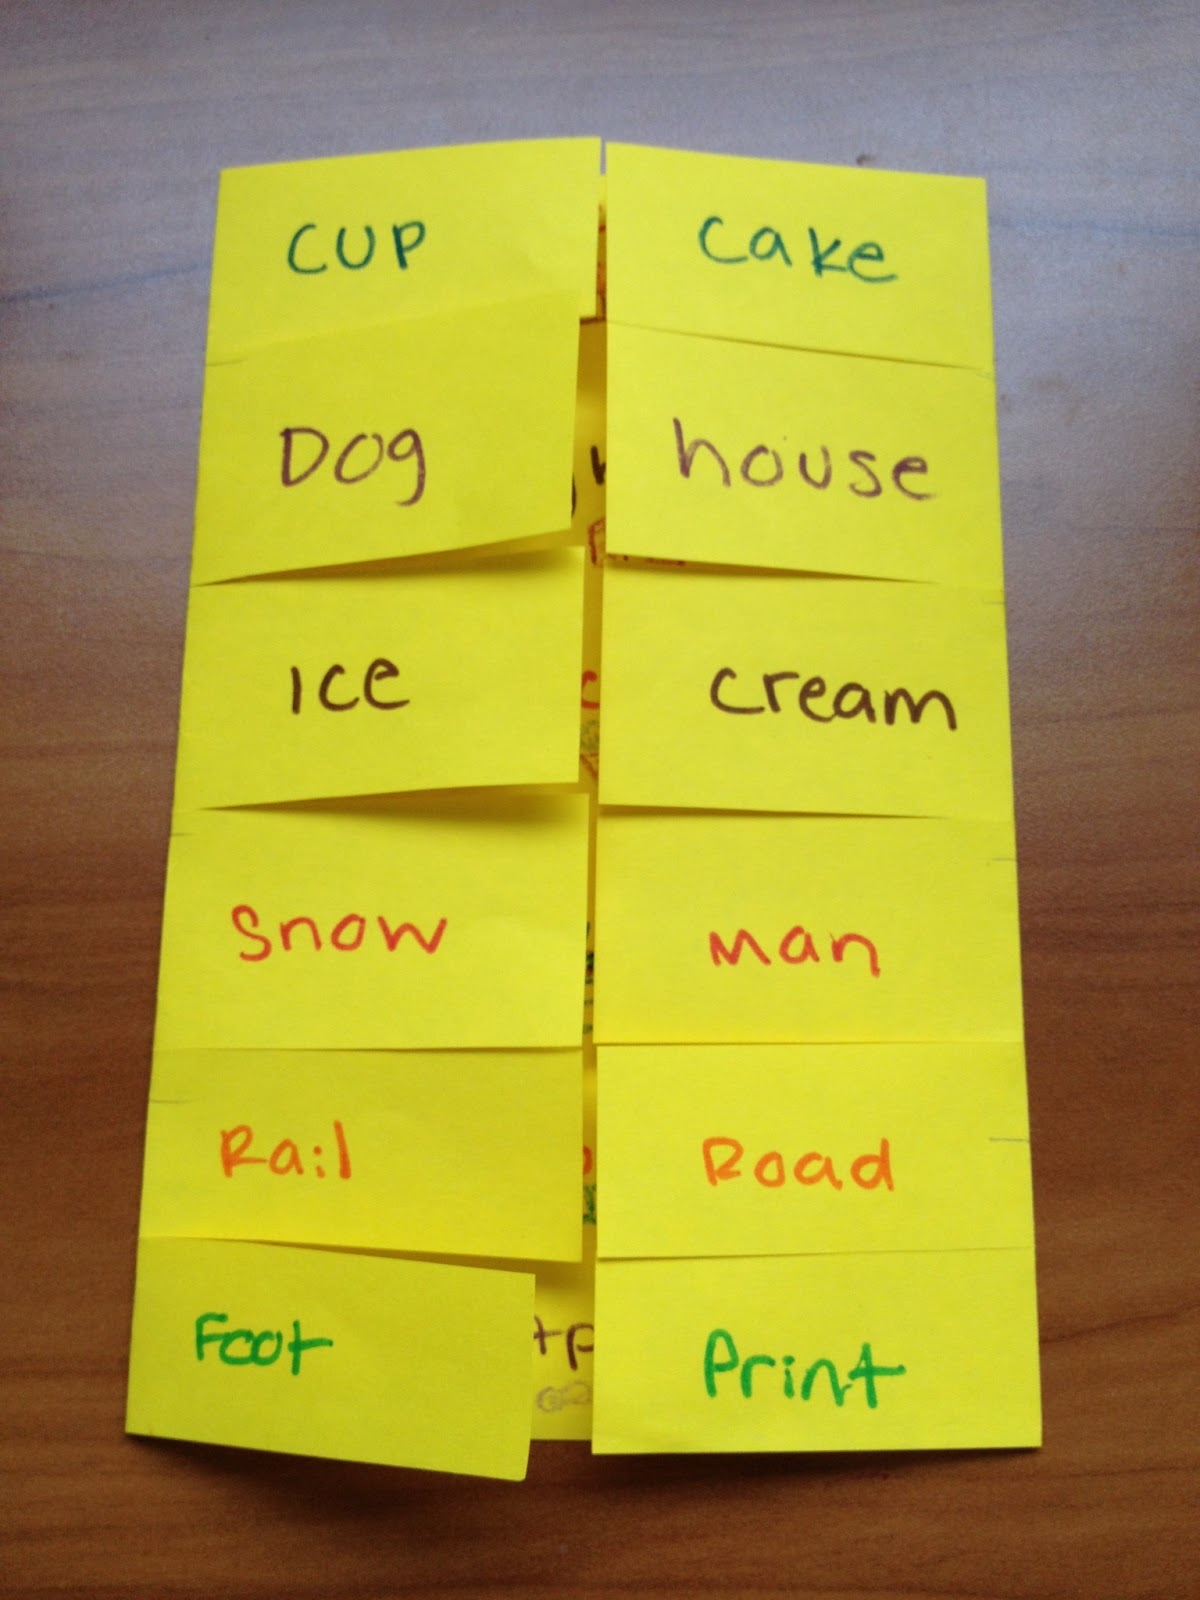 CUP cake
Dog house
Ice cream
Snow Man
Rail Road
Foot Print